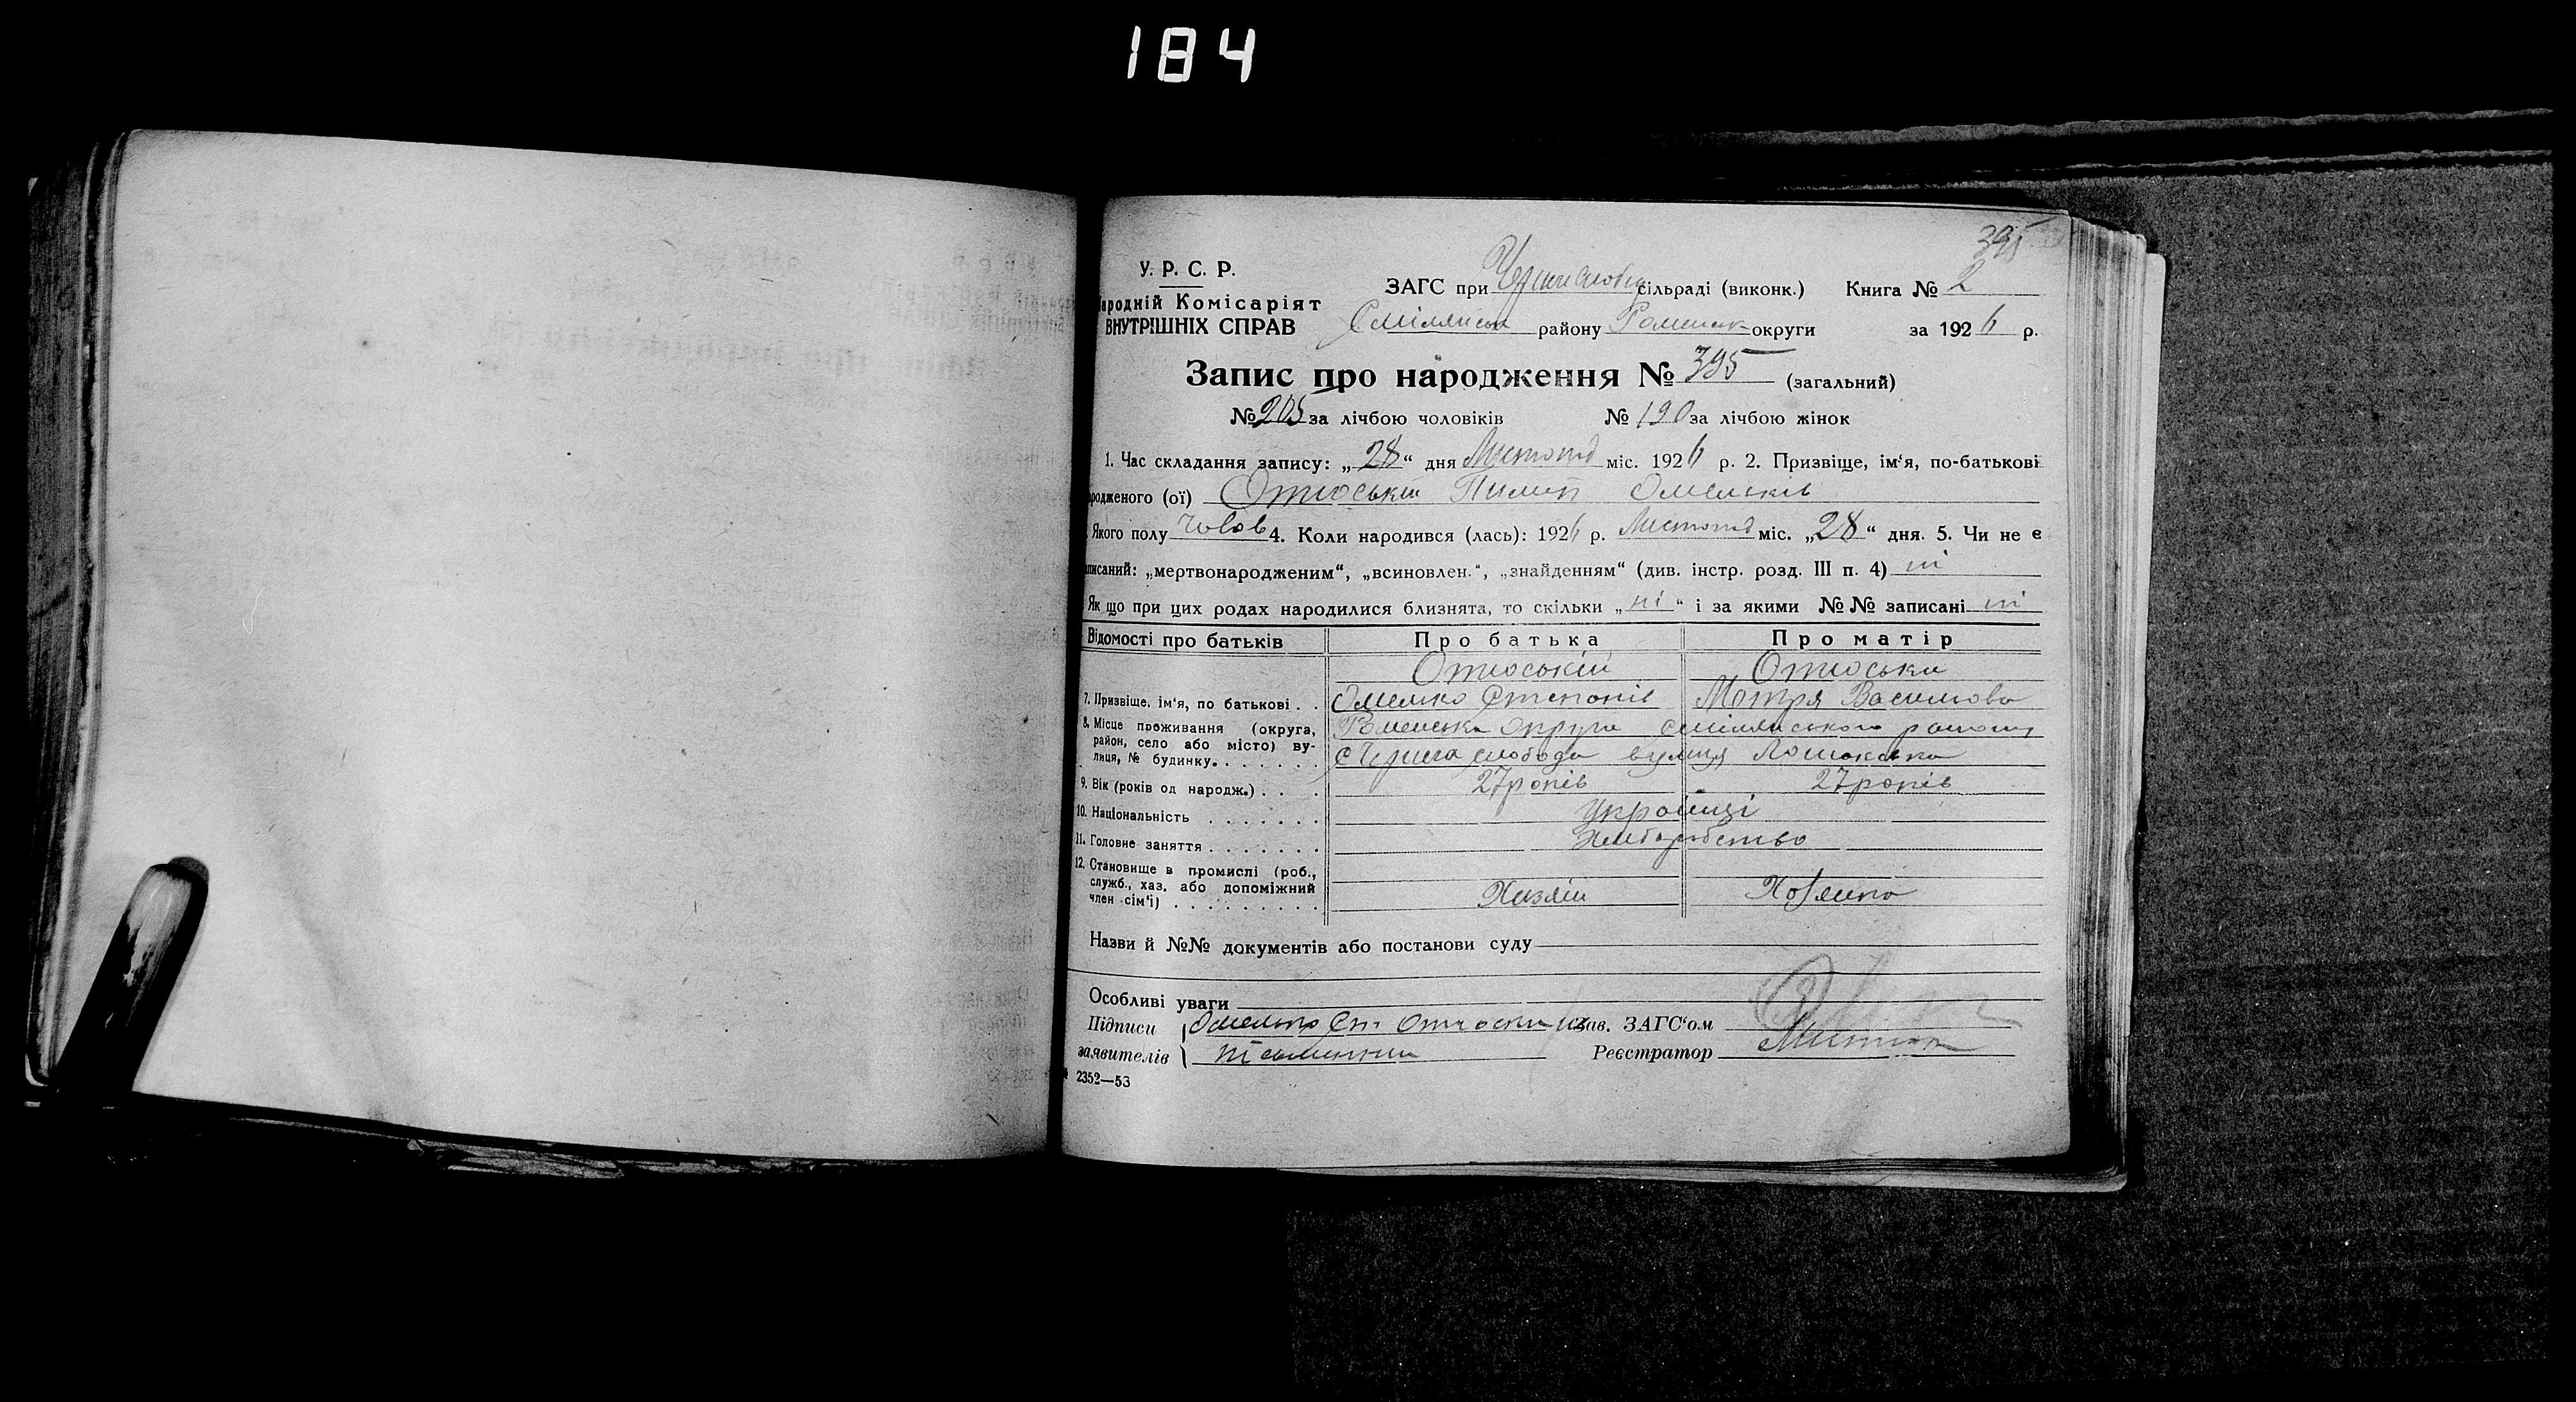 184
395
У. Р. С. Р.
Народній Комісаріят
ВНУТРІШНІХ СПРАВ
ЗАГС при сільраді (виконк.) Книга № 2
Смілянськ району Роменськ округи за 1926 р.
Запис про народження № 395 (загальний)
№ 205 за лічбою чоловіків № 190 за лічбою жінок
1. Час складання запису: „28“ дня Листопад міс. 1926 р. 2. Призвіще, ім‘я, по-батькові
родженого (ої) Отюській Пилип Омельків
Якого полу Чолов 4. Коли народився (лась): 1926 р. Листопад міс. „28“ дня. 5. Чи не є
писаний: „мертвонародженим“, „всиновлен.“, „знайденням“ (див. інстр. розд. III п. 4) ні
Як що при цих родах народилися близнята, то скільки „ні“ і за якими №№ записані ні
Відомості про батьків Про батька Про матір
Отюській Отюська
7. Призвіще, ім‘я, по батькові . . Омелько Степанів Мотря Василова
8. Місце проживання (округа, Роменська округа Смілянського району
район, село або місто) ву-
лиця, № будинку. . . . . . . с Чернеча слобода вулиця
9. Вік (років од народж.) . . . 27 років 27 років
10. Національність . . . . . . . Українці
11. Головне заняття . . . . . . . Хліборобство
12. Становище в промислі (роб.,
служб., хаз. або допоміжний
член сім‘ї) . . . . . . . . . Хазяін Хозяйка
Назви й №№ документів або постанови суду
Особливі уваги
Підписи Омелько Ст. Зав. ЗАГС‘ом
заявителів Реєстратор
2352—53